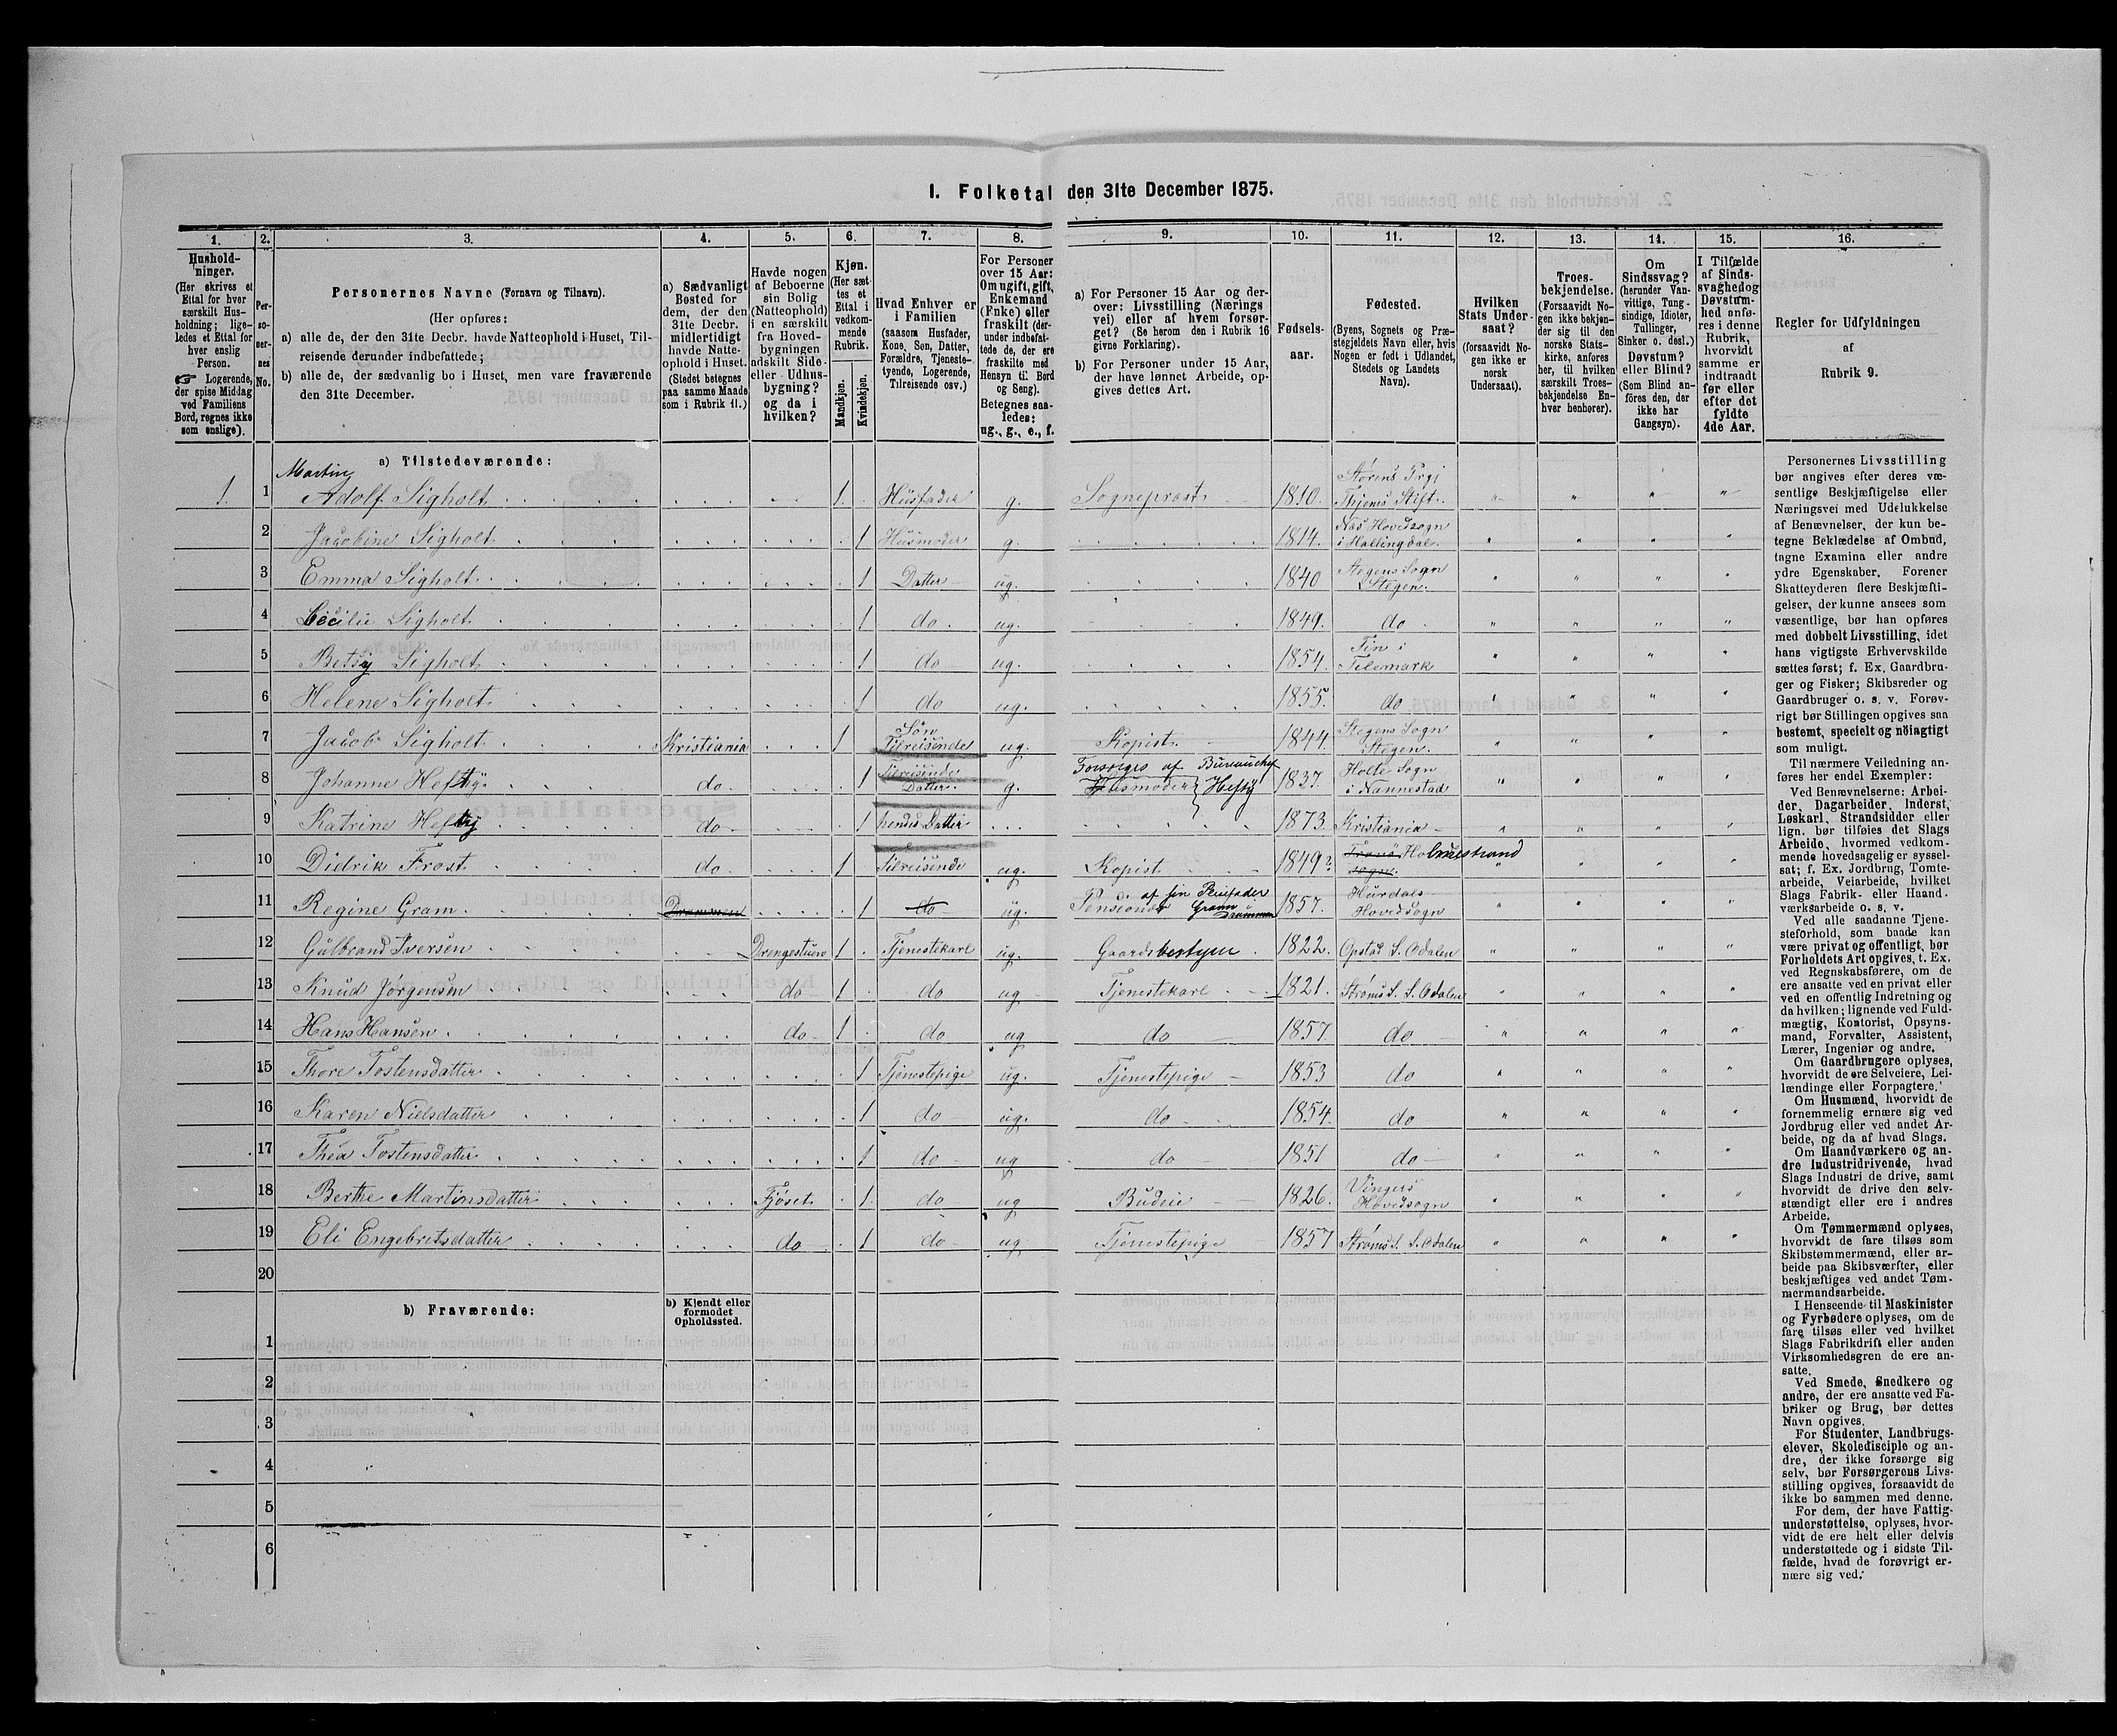 I. Folketal den 31te December 1875.
1. 2. 3. 4. 5. 6. 7. 8. 9. 10. 11. 12. 13. 14. 15. 16.
Hushold-
ninger.
(Her skrives et
Ettal for hver
særskilt Hus-
holdning; lige-
ledes et Ettal for
hver enslig
Person.
☞ Logerende,
der spise Middag
ved Familiens
Bord, regnes ikke
som enslige).
Per-
so-
ner-
nes
No.
Personernes Navne (Fornavn og Tilnavn).
(Her opføres:
a) alle de, der den 31te Decbr. havde Natteophold i Huset, Til-
reisende derunder indbefattede;
b) alle de, der sædvanlig bo i Huset, men vare fraværende
den 31te December.
a) Sædvanligt
Bosted for
dem, der den
31te Decbr.
midlertidigt
havde Natte-
ophold i Huset.
(Stedet betegnes
paa samme Maade
som i Rubrik 11.)
Havde nogen
af Beboerne
sin Bolig
(Natteophold)
i en særskilt
fra Hoved-
bygningen
adskilt Side-
eller Udhus-
bygning?
og da i
hvilken?
Kjøn.
(Her sæt-
tes et
Ettal i
vedkom-
mende
Rubrik.
Mandkjøn.
Kvindekjøn.
Hvad Enhver er
i Familien
(saasom Husfader,
Kone, Søn, Datter,
Forældre, Tjeneste-
tyende, Logerende,
Tilreisende osv.)
For Personer
over 15 Aar:
Om ugift, gift,
Enkemand
(Enke) eller
fraskilt (der-
under indbefat-
tede de, der ere
fraskilte med
Hensyn til Bord
og Seng).
Betegnes saa-
ledes:
ug., g., e., f.
a) For Personer 15 Aar og der-
over: Livsstilling (Nærings
vei) eller af hvem forsør-
get? (Se herom den i Rubrik 16
givne Forklaring).
b) For Personer under 15 Aar,
der have lønnet Arbeide, op-
gives dettes Art.
Fødsels-
aar.
Fødested.
(Byens, Sognets og Præ-
stegjeldets Navn eller, hvis
Nogen er født i Udlandet,
Stedets og Landets
Navn).
Hvilken
Stats Under-
saat?
(forsaavidt No-
gen ikke er
norsk
Undersaat).
Troes-
bekjendelse.
(Forsaavidt No-
gen ikke bekjen-
der sig til den
norske Stats-
kirke, anføres
her, til hvilken
særskilt Troes-
bekjendelse En-
hver henhører).
Om
Sindssvag?
(herunder Van-
vittige, Tung-
sindige, Idioter,
Tullinger,
Sinker o. desl.)
Døvstum?
eller Blind?
(Som Blind an-
føres den, der
ikke har
Gangsyn).
I Tilfælde
af Sinds-
svaghed og
Døvstum-
hed anfø-
res i denne
Rubrik,
hvorvidt
samme er
indtraadt
før eller
efter det
fyldte
4de Aar.
Regler for Udfyldningen
af
Rubrik 9.
a) Tilstedeværende:
1. 1 Martin Adolf Sigholt 1. Husfader g. Sogneprest 1810. Størens Prgj Thjems Stift.
2 Jacobine Sigholt 1 Husmoder g. 1814. Nas Hovedsogn i Hallingdal.
3 Emma Sigholt 1 Datter ug. 1840 Stegens Sogn i Stegen.
4 Cecilie Sigholt 1 do. ug. 1849. do
5 Betsy Sigholt 1 do ug. 1854. Tin i Telemark
6 Helene Sigholt 1 do ug. 1855. do
7 Jacob Sigholt Kristiania 1 Søn Tilreisende ug. Kopist 1844. Stegens Sogn Stegen.
8 Johanne Heftye do. 1 Tilreisende Datter. g. Forsørges af Bureauchef Husmoder Hefty 1837. Holte Sogn i Nannestad
9 Katrine Hefty do 1 hendes Datter 1873. Kristiania
10 Didrik Frost do. 1 Tilreisende ug. Kopist 1849? Tranö Sogn. Holmestrand
11 Regine Gram. Drammen 1 do ug. Pensionær af sin Gram i Drammen 1857. Hurdals Hovedsogn
12 Gulbrand Iversen Drengestuen 1 Tjenestekarl ug. Gaardsbestyrer 1822. Opstad S. Odalen
13 Knud Jörgensen do 1 do ug Tjenestekarl 1821. Ströms S. S. Odalen
14 Hans Hansen do 1 do ug do 1857. do
15 Thore Tostensdatter 1 Tjenestepige ug. Tjenestepige 1853 do
16 Karen Nielsdatter 1 do ug. do 1854. do
17 Thea Tostensdatter 1 do ug do 1851 do
18 Berthe Martinsdatter Fjöset 1 do ug Budeie 1826. Vingers Hovedsogn
19 Eli Engebretsdatter do 1 do ug Tjenestepige 1857 Ströms S. S. Odalen
20
b) Fraværende:
b) Kjendt eller
formodet
Opholdssted.
1
2
3
4
5
6
Personernes Livsstilling
bør angives efter deres væ-
sentlige Beskjæftigelse eller
Næringsvei med Udelukkelse
af Benævnelser, der kun be-
tegne Beklædelse af Ombud,
tagne Examina eller andre
ydre Egenskaber. Forener
Skatteyderen flere Beskjæfti-
gelser, der kunne ansees som
væsentlige, bør han opføres
med dobbelt Livsstilling, idet
hans vigtigste Erhvervskilde
sættes først; f. Ex. Gaardbru-
ger og Fisker; Skibsreder og
Gaardbruger o. s. v. Forøv-
rigt bør Stillingen opgives saa
bestemt, specielt og nöiagtigt
som muligt.
Til nærmere Veiledning an-
føres her endel Exempler:
Ved Benævnelserne: Arbei-
der, Dagarbeider, Inderst,
Løskarl, Strandsidder eller
lign. bør tilføies det Slags
Arbeide, hvormed vedkom-
mende hovedsagelig er syssel-
sat; f. Ex. Jordbrug, Tomte-
arbeide, Veiarbeide, hvilket
Slags Fabrik- eller Haand-
værksarbeide o. s. v.
Ved alle saadanne Tjene-
steforhold, som baade kan
være privat og offentligt, bør
Forholdets Art opgives, t. Ex.
ved Regnskabsførere, om de
ere ansatte ved en privat eller
ved en offentlig Indretning og
da hvilken; lignende ved Fuld-
mægtig, Kontorist, Opsyns-
mand, Forvalter, Assistent,
Lærer, Ingeniør og andre.
Om Gaardbrugere oplyses,
hvorvidt de ere Selveiere, Lei-
lændinge eller Forpagtere.
Om Husmænd, hvorvidt de
fornemmelig ernære sig ved
Jordbrug eller ved andet Ar-
beide, og da af hvad Slags.
Om Haandværkere og an-
dre Industridrivende, hvad
Slags Industri de drive, samt
hvorvidt de drive den selv-
stændigt eller ere i andres
Arbeide.
Om Tømmermænd oplyses,
hvorvidt de fare tilsøs som
Skibstømmermænd, eller ar-
beide paa Skibsværfter, eller
beskjæftiges ved andet Tøm-
mermandsarbeide.
I Henseende til Maskinister
og Fyrbødere oplyses, om de
fare tilsøs eller ved hvilket
Slags Fabrikdrift eller anden
Virksomhedsgren de ere an-
satte.
Ved Smede, Snedkere og
andre, der ere ansatte ved Fa-
briker og Brug, bør dettes
Navn opgives.
For Studenter, Landbrugs-
elever, Skoledisciple og an-
dre, der ikke forsørge sig
selv, bør Forsørgerens Livs-
stilling opgives, forsaavidt de
ikke bo sammen med denne.
For dem, der have Fattig-
understøttelse, oplyses, hvor-
vidt de ere helt eller delvis
understøttede og i sidste Til-
fælde, hvad de forøvrigt er-
nære sig ved.